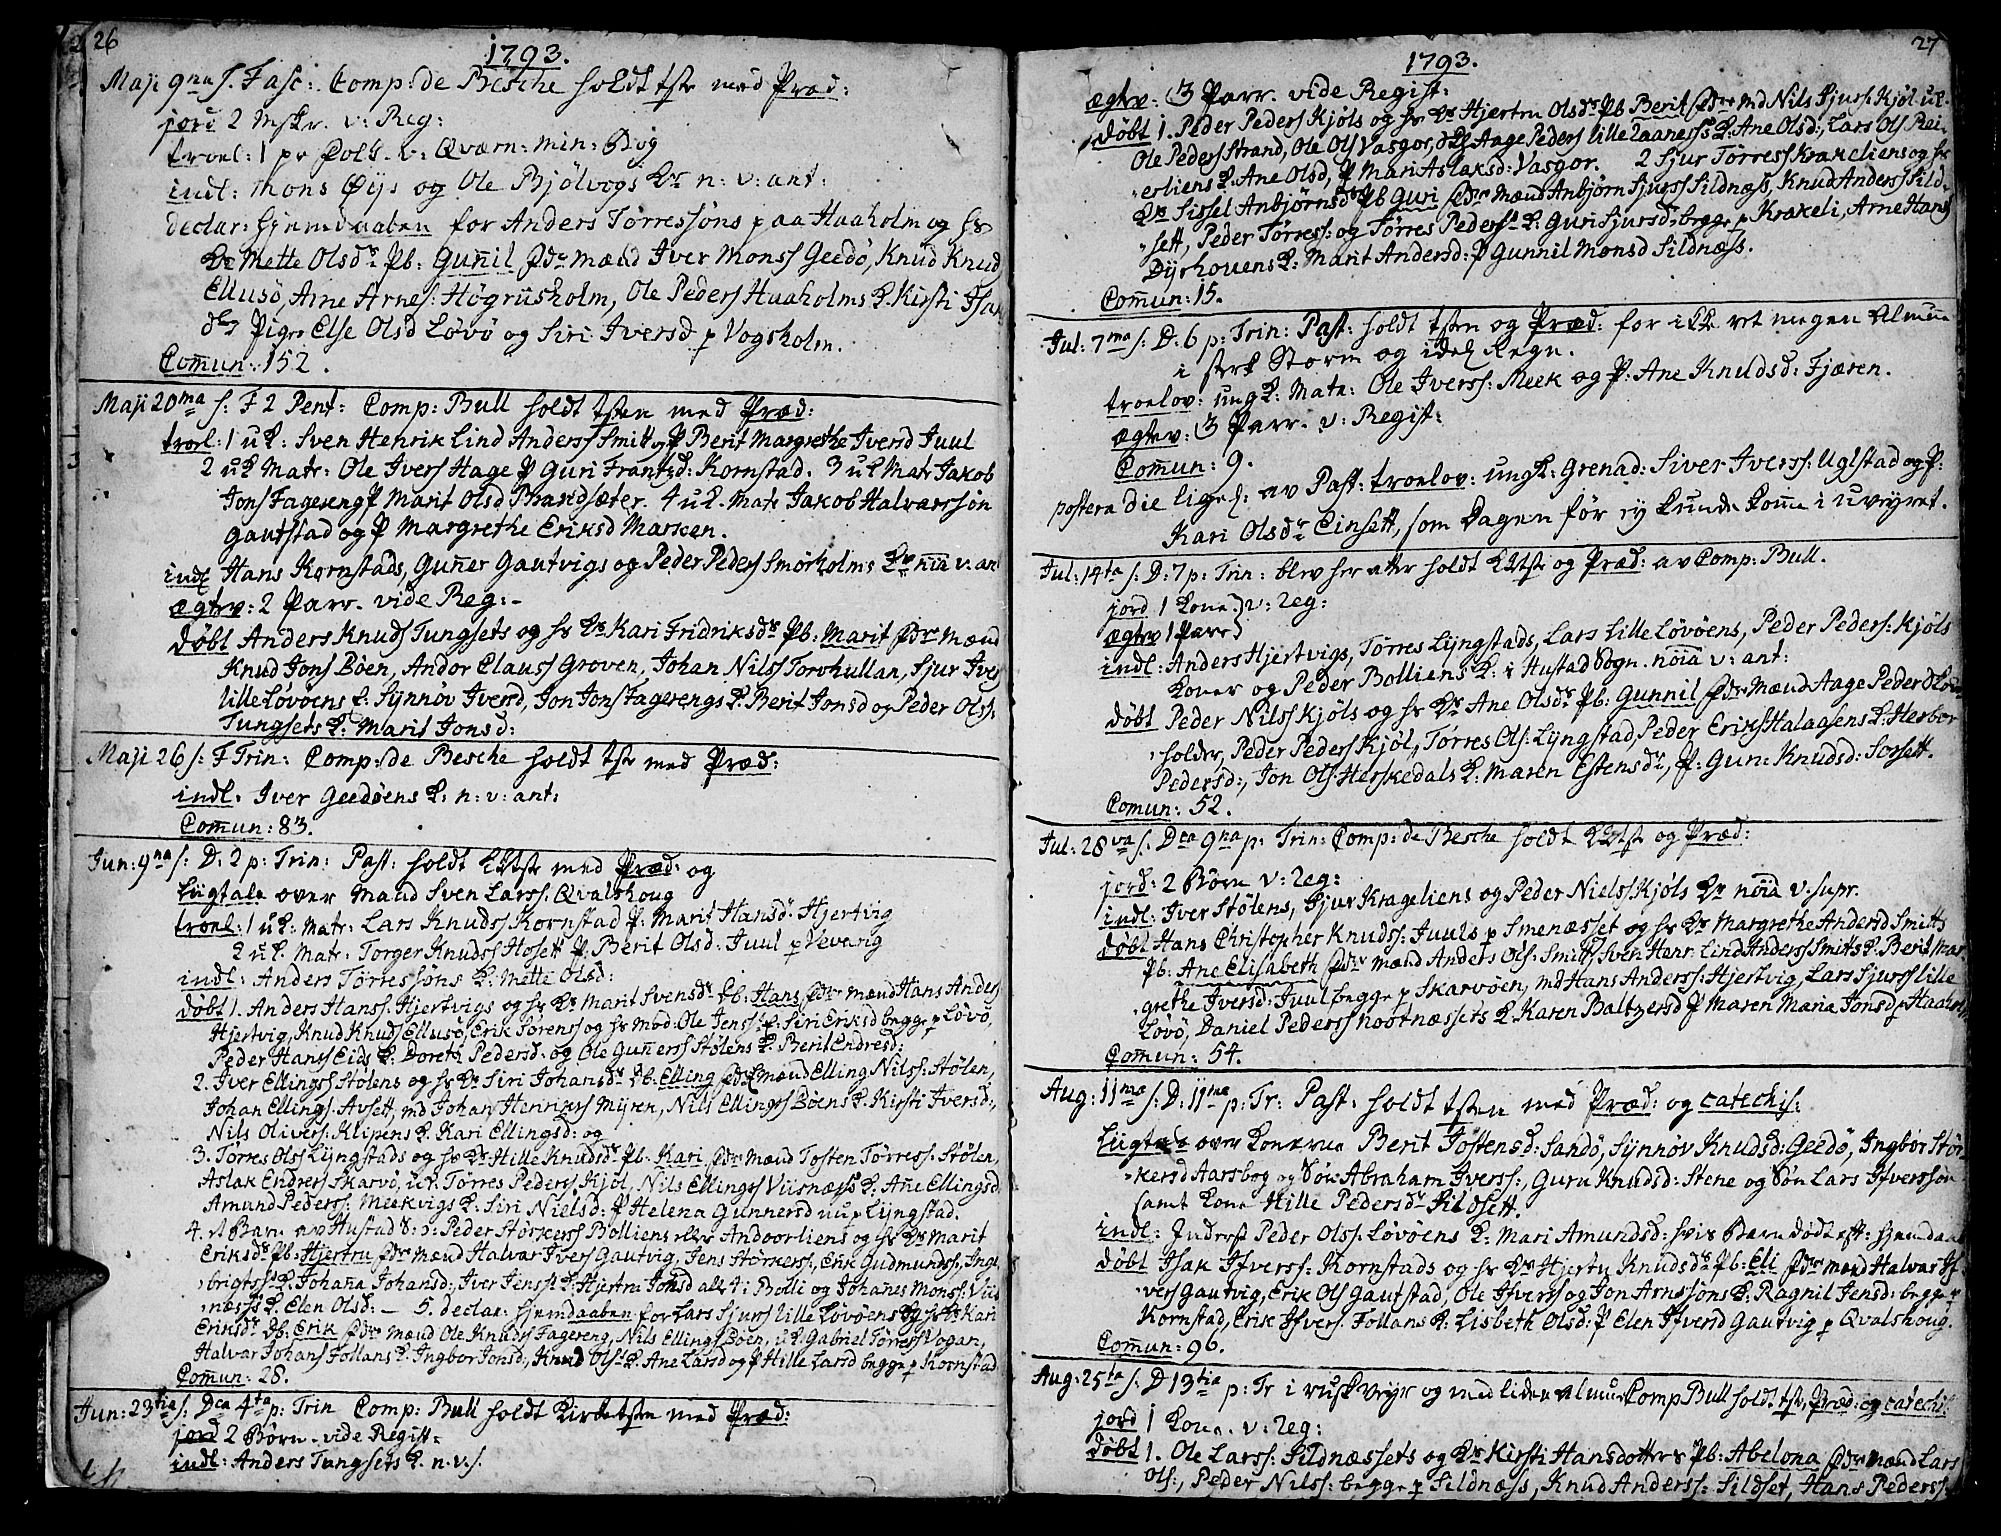 26
1793.
Maji 9na s. Fasc: Comp: de Besche holdt tste med Præd:
jord 2 Mskr. v: Reg:
troel: 1 pr Pols. v: Qværn: min: Bog
indl: Mons Øijs og Ole Bjølvogs Kr n: v: ant:
declar: hjemdaaben for Anders Tørressøns paa Haaholm og hs
Kr Mette Olsdr Pb: Gunnil fdr Mænd Iver Monss Geedø, Knud Knud
Ellusø, Arne Arnes: Høgrüsholm, Ole Peders Haaholms K. Kirsti Isak
dr Piger Else Olsd Løvø og Siri Iversd p Vogsholm.
Com̄un: 152.
Maji 20ma s: F 2 Pent: Comp: Bull holdt tsten med Præd:
troel: 1 u K: Sven Henrik Lind Anderss Smitt og P Berit Margrethe Iversd Juul
2 uK Matr: Ole Ivers Hage P Guri Frantsd: Kornstad. 3 uK Matr Jakob
Jons Fagereng P Marit Olsd Brandsæter. 4 u K. Matr Jakob Halvarssøn
Gautstad og P Margrethe Eriksd Marken.
indl Hans Kornstads, Gun̄er Gautvigs og Peder Peders Smørholms Kr nōia v: an
ægtev: 2 Parr. vide Reg:-
døbt Anders Knuds Tungsets og hs Kr Kari Fridriksdr Pb: Marit fdr Mænd
Knud Jons Böen, Andor Clauss Groven, Johan Nilss Torvhullan, Sjur Ivers
lille Løvöens K: Synnøv Iversd, Jon Jons Fagerengs K. Berit Jonsd og Peder Olss:
Tungsets K: Marit Jonsd:
Maji 26 s: F Trin: Comp: de Besche holdt tste med Præd:
indl. Iver Geedöens K: n: v: ant:
Com̄un: 83.
Jun: 9na s: D: 2 p: Trin: Past: holdt KKtste med Præd: og
Liigtale over Mand Sven Larss: Qvalshoug
troel: 1 uK: Matr: Lars Knudss Kornstad P: Marit Hansd: Hjertvig
2 uK. Matr: Torger Knudss Hosett P: Berit Olsd: Juul p Vevang
indl: Anders Tørressøns K: Mette Olsd:
døbt 1. Anders Hanss: Hjertvigs og hs Kr Marit Svensdr Pb: Hans fdr Mænd Hans Anders
Hjertvig, Knud Knuds Ellusø, Erik Torenss og hs mod: Ole Jenss: K: Siri Eriksd begge p Løvö,
Peder Hanss Eids K. Doreth Pedersd: og Ole Gun̄erss Stølens K. Berit Endresd:
2. Iver Ellingss Stølens og hs Kr Siri Johansdr Pb: Elling fdr Mænd Elling Nilss: Stølen,
Johan Ellings: Avsett, md Johan Henriks Myren, Nils Ellingss Böens K. Kirsti Iversd:,
Nils Olivers: Klipens K. Kari Ellingsd: og
3. Torres Olss Lyngstads og hs Kr Hille Knudsdr Pb: Kari fdr Mænd Tosten Tørress: Stølen,
Aslak Endress Skarvö, uK. Tørres Peders Kjöl, Nils Ellingss Viisnæss K: An̄e Ellingsd
Amund Peders: Meekvigs K. Siri Nielsd: P Helena Gunnersd nu p Lyngstad.
4. et Barn av Hustad S: s: Peder Størkerss Bolliens eller Andoorliens og hs Kr Marit
Eriksdr Pb: Hjertru fdr Mænd Halvar Ivers Gautvig, Jens Størkers:, Erik Gudmundss:, Inge
brigtss K. Johan̄a Johansd:, Iver Jenss K: Hjertru Jonsd alle i Bolli og Johan̄es Monss: Viis
næss K. Elen Olsd: — 5. declar: hjemdaaben for Lars Sjurs lille Løvöens og hs Kr Kari
Eriksdr Pb: Erik fdr Mænd Ole Knuds Fagereng, Nils Ellings Böen, uK. Gabriel Tørress Vogan,
Halvar Johans Follans K. Ingbor Jonsd:, Knud Olss K. Ane Larsd og P Hille Larsd begge p Kornstad
Com̄un: 28.
Jun: 23tia s: Dca 4ta p: Trin Comp: Bull holdt Kirketsten med Præd:
jord 2 Börn. vide Regist:
indl: Anders Tungsets K. n. v:s.
27
1793.
ægtev: 3 Parr. vide Regist:
døbt 1. Peder Peders Kjöls og hs Kr Hjertru Olsdr Pb Berit fdr Md Nils Sjurs: Kjöl uK.
Ole Peders Strand, Ole Ols Vasgor, Aage Peders lille Laaness K. Ane Olsd:, Lars Ols Rei-
erliens K. Ane Olsd, P Mari Aslaksd: Vasgor. 2 Sjur Tørress Krakeliens og hs
Kr Sissel Anbjørnsdr Pb Guri fdr Mænd Anbjørn Sjurss Sildnæss, Knud Anderss Sild-
sett, Peder Tørress: og Tørres Peders: K: Guri Sjursd: begge p Krakeli, Arne Hans
Dyrhouens K: Marit Andersd: P Gunnil Monsd Sildnæss.
Com̄un: 15.
Jul: 7ma s: D: 6 p: Trin: Past: holdt tsten og Præd: for ikke ret megen Almue
i sterk Storm og idel Regn.
troelov: ungK: Matr: Ole Iverss: Meek og P: Ane Knudsd: Fjæren.
ægtev: 3 Parr. v: Regist:
Com̄un: 9.
postera die liges: av Past: troelov: ungK: Grenad: Siver Iverss: Uglstad og P:
Kari Olsdr Einsett, som Dagen för ey kunde kom̄e i uveyret.
Jul: 14ta s: D: 7 p: Trin: blev her atter holdt KKtste og Præd: av Comp: Bull.
jord 1 Kone
ægtev 1 Parr } v: Reg:
indl: Anders Hjertvigs, Tørres Lyngstads, Lars Lille Løvöens, Peder Peders: Kjöls
Koner og Peder Bolliens K: i Hustad Sogn. nōia v: ant:
døbt Peder Nilss Kjöls og hs Kr Ane Olsdr Pb: Gunnil fdr Mænd Aage Peders
holder, Peder Peders Kjöl, Tørres Ols: Lyngstad, Peder Eriks Halaasens K: Herbor
Pedersd:, Jon Ols: Herskedals K: Maren Estensdr, P: Gun: Knudsd: Sorsett.
Comun: 52.
Jul: 28va s. Dca 9na p: Trin: Comp: de Besche holdt KKtste og Præd:
jord: 2 Börn v: Reg:
indl: Iver Stølens, Sjur Krageliens og Peder Nielss Kjöls Kr nōia v: supr.
døbt Hans Christopher Knudss: Juuls p Smenæsset og hs Kr Margrethe Andersd Smitts
Pb: Ane Elisabeth fdr Mænd Anders Ols: Smitt, Sven Henr: Lind Anderss Smitts K. Berit Mar
grethe Iversd: Juul begge p Skarvöen, md Hans Anderss: Hjertvig, Lars Sjurss lille
Løvö, Daniel Pederss Nootnæssets K. Karen Baltzersd P Maren Maria Jonsd p Haaholm,
Com̄un: 54.
Aug: 11ma s: D: 11ma p: Tr: Past: holdt tsten med Præd: og catechis:
Liigtale over Konerne Berit Jostensd: Sandö, Synnøv Knudsd: Geedö, Ingbor Stør-
kersd Aarsbog og Søn Abraham Iverss:, Guru Knudsd: Stene og Søn Lars Ifverssøn
samt Kone Hille Pedersdr Sildsett.
indl: Inderst Peder Olss: Løvöens K: Mari Amundsd: hvis Barn döde eft: hjemdaab
døbt Isak Ifverss: Kornstads og hs Kr Hjertu Knudsdr Pb: Eli fdr Mænd Halvar If-
vers Gautvig, Erik Ols Gautstad, Ole Ifvers og Jon Arnessøns K: Ragnil Jensd: begge p
Kornstad, Erik Ifvers: Follans K: Lisbeth Olsd: P Elen Ifversd Gautvig p Qvalshoug.
Com̄un: 96.
Aug: 25ta s: D 13tia p: Tr i rusk veyr og med liden Almue Comp Bull hold: tste, Præd: og catechis:
jord 1 Kone. v: Reg:
døbt 1. Ole Larss: Sildnæssets og Kr Kirsti Hansdotters Pb: Abelona fdr Mænd Lars
Ols:, Peder Nilss: begge p Sildnæss, Knud Anderss: Sildset, Hans Pederss: